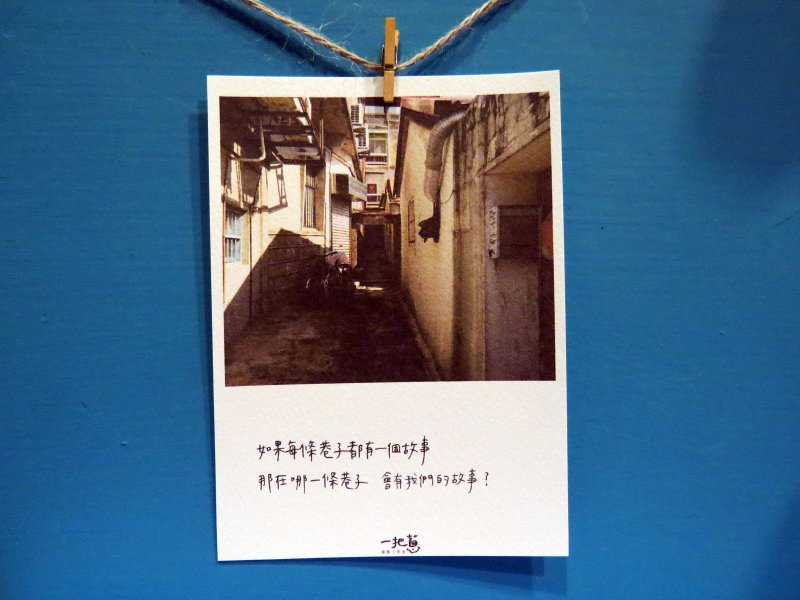 如果每條巷子都有一個故事
那在哪一條巷子 會有我們的故事？
一把蔥